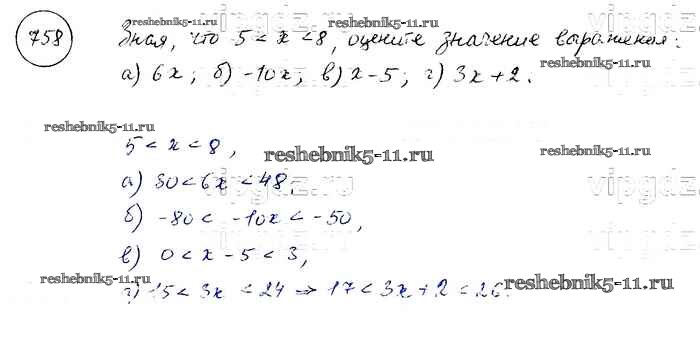 reshebnik5-11.ru
vipgdz.ru
758
Зная, что 5 < x < 8, оцените значение выражения:
а) 6x; б) -10x; в) x-5; г) 3x+2.
reshebnik5-11.ru
reshebnik5-11.ru
reshebnik5-11.ru
5 < x < 8,
reshebnik5-11.ru
reshebnik5-11.ru
а) 30 < 6x < 48,
vipgdz.ru
б) -80 < -10x < -50,
в) 0 < x - 5 < 3,
vipgdz.ru
reshebnik5-11.ru
reshebnik5-11.ru
г) 15 < 3x < 24 ⇒ 17 < 3x + 2 < 26.
vipgdz.ru